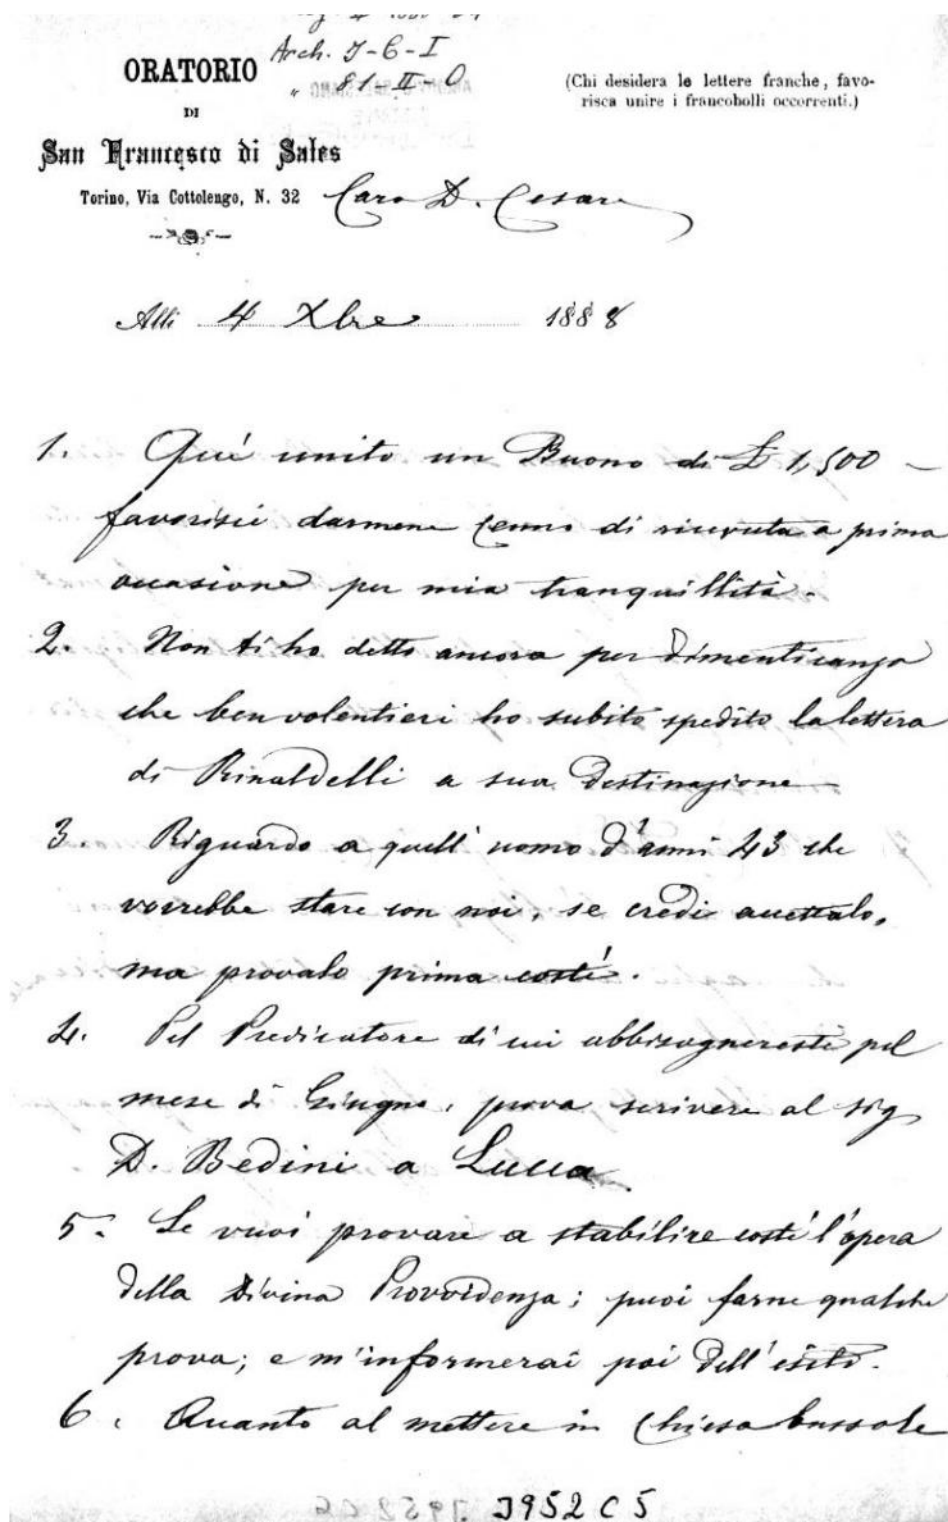 Arch. J-C-I
" 81-II-O
ORATORIO
DI
San Francesco di Sales
Torino, Via Cottolengo, N. 32
(Chi desidera le lettere franche, favo-
risca unire i francobolli occorrenti.)
Caro D. Cesare
Alli 4 Xbre 1888
1. Quì unito un Buono di £ 1,500 –
favorisci darmene cenno di ricevuta a prima
occasione per mia tranquillità.
2. Non ti ho detto ancora per dimenticanza
che ben volentieri ho subito spedito la lettera
di Rinaldelli a sua destinazione
3. Riguardo a quell'uomo d'anni 43 che
vorrebbe stare con noi, se credi accettalo,
ma provalo prima costì.
4. Pel Predicatore di cui abbisognereste pel
mese di Giugno, prova scrivere al sig
D. Bedini a Lucca
5. Se vuoi provare a stabilire costì l'opera
della Divina Provvidenza; puoi farne qualche
prova; e m'informerai poi dell'esito.
6. Quanto al mettere in Chiesa bussole
J952C5